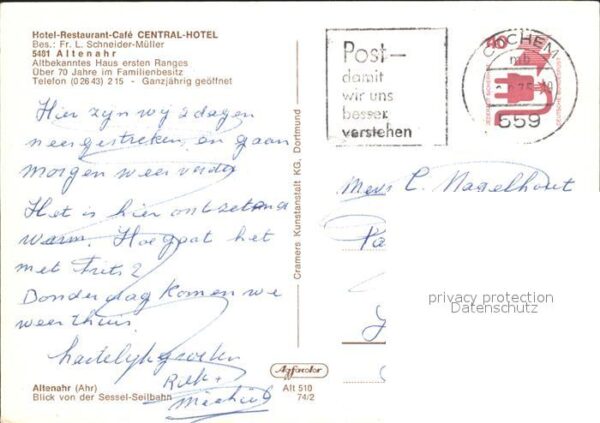 Hotel-Restaurant-Café CENTRAL-HOTEL
Bes.: Fr. L. Schneider-Müller
5481 Altenahr
Altbekanntes Haus ersten Ranges
Über 70 Jahre im Familienbesitz
Telefon (0 26 43) 2 15 - Ganzjährig geöffnet
Hier zyn wy 2 dagen
neergestreken, en gaan
morgen weer verder
Het is hier ontzetend
warm. Hoe gaat het
met Frits?
Donderdag komen we
weer thuis.
hartelyke groeten
Alt 510
74/2
Altenahr (Ahr)
Blick von der Sessel-Seilbahn
Cramers Kunstanstalt KG, Dortmund
Agfacolor
Post-
damit
wir uns
besser
verstehen
COCHEM
mb
559
40
DEUTSCHE BUNDESPOST
Mevr C. Nagelhout
privacy protection
Datenschutz